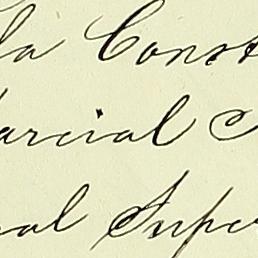 la Const
arcial
al Supe